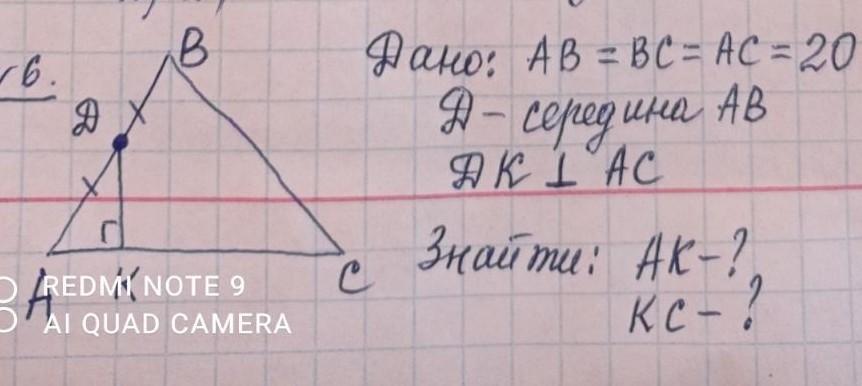 6.
Дано: AB = BC = AC = 20
Д - середина AB
ДК ⊥ AC
Знайти: AK-?
KC-?
B
Д
A
K
C
REDMI NOTE 9
AI QUAD CAMERA